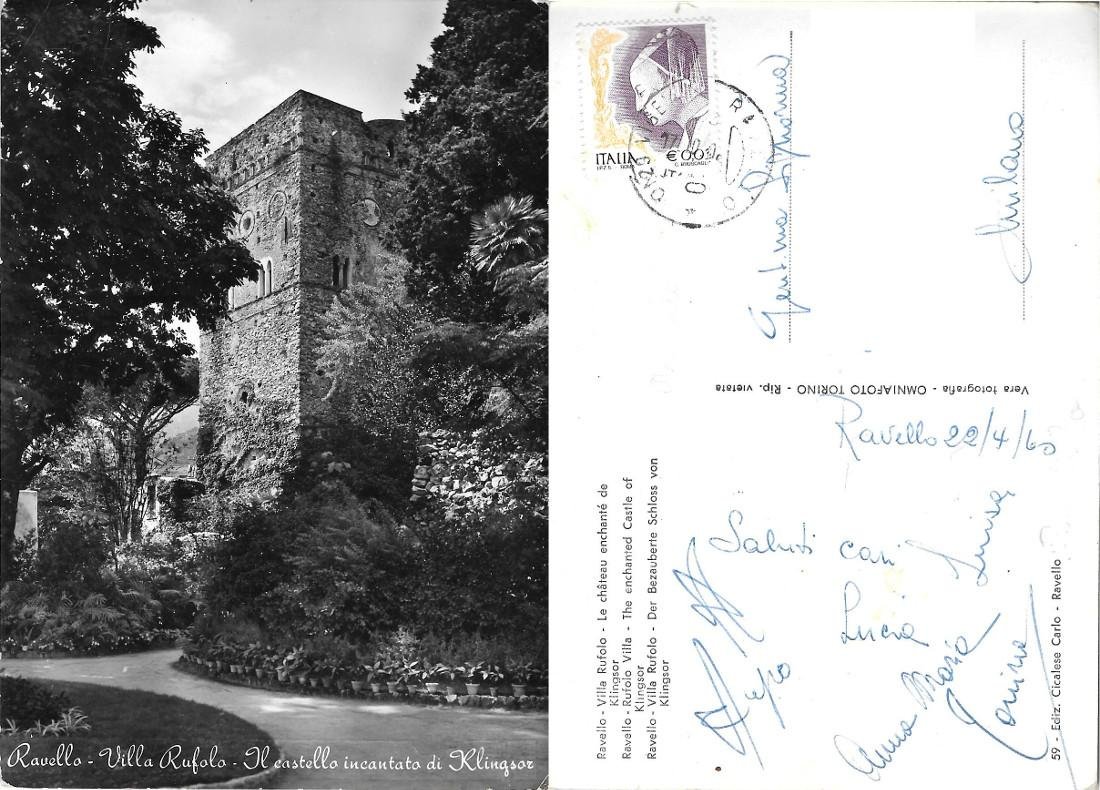 Ravello - Villa Rufolo - Il castello incantato di Klingsor
ITALIA €0,03
Milano
Vera fotografia - OMNIAFOTO TORINO - Rip. vietata
Ravello 22/4/60
Saluti cari
Lucia Luisa
Anna Maria
Ravello - Villa Rufolo - Le château enchanté de
Klingsor
Ravello - Rufolo Villa - The enchanted Castle of
Klingsor
Ravello - Villa Rufolo - Der Bezauberte Schloss von
Klingsor
59 - Ediz. Cicalese Carlo - Ravello